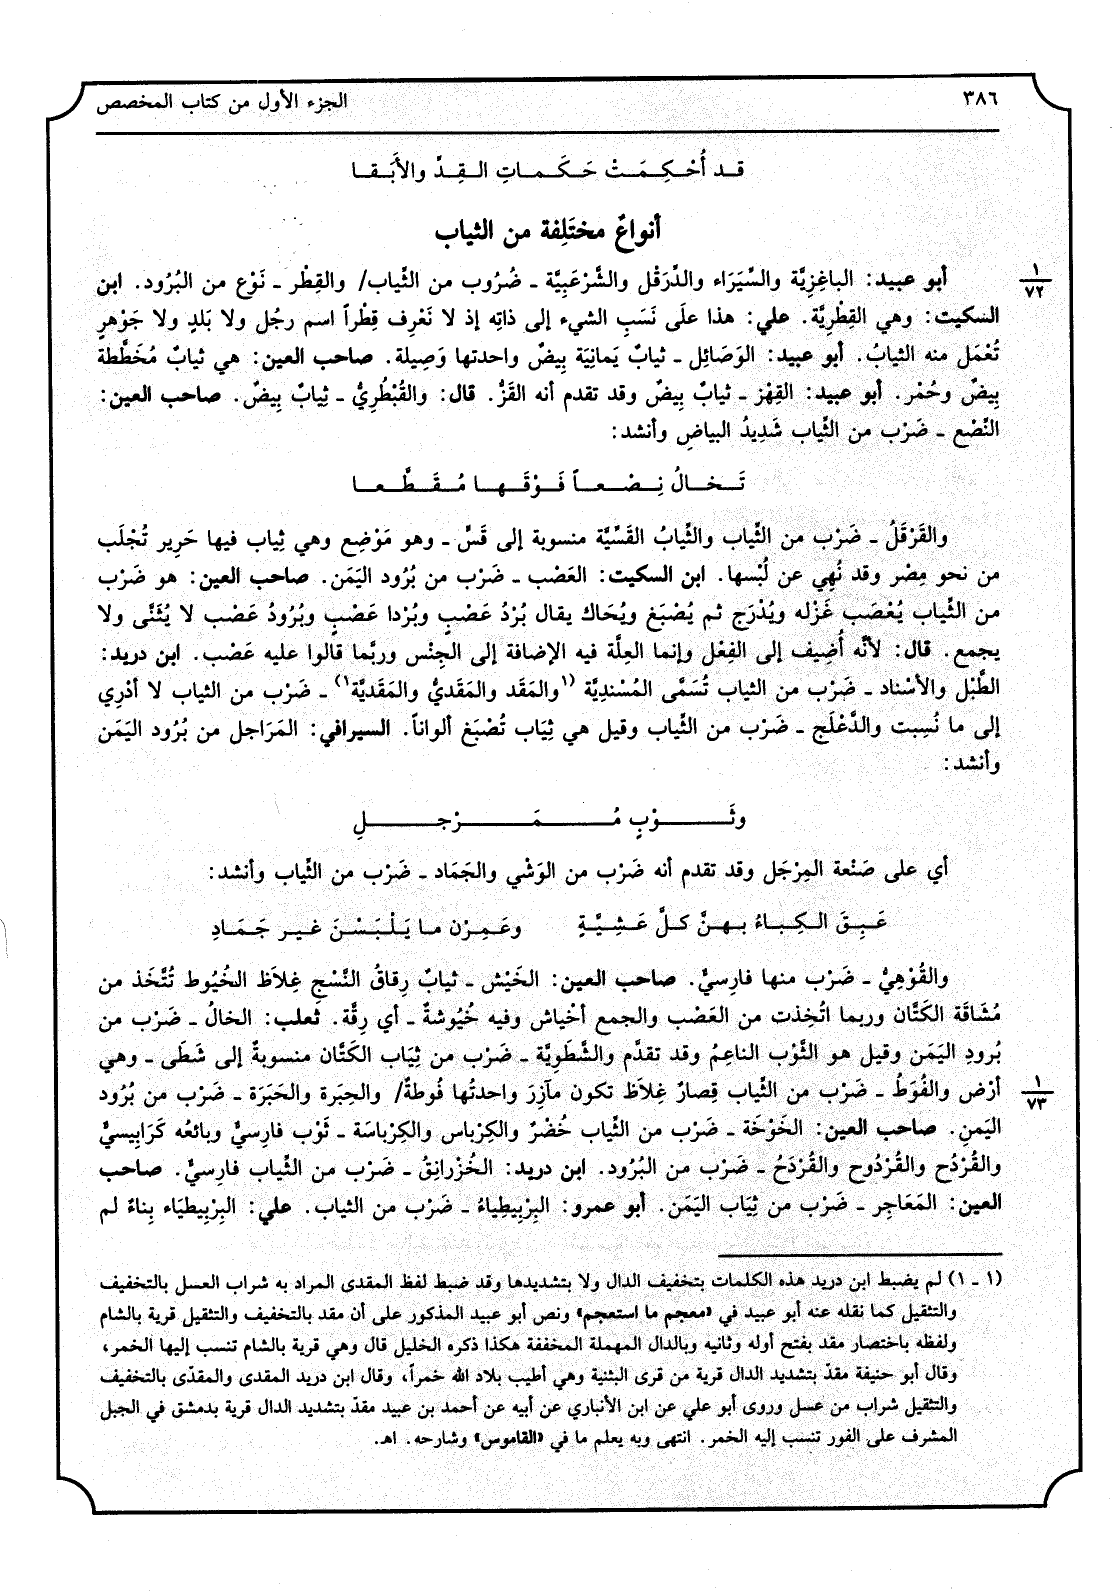 ٣٨٦ الجزء الأول من كتاب المخصص
قد أُحْكِمَتْ حَكَماتِ القِدِّ والأَبَقا
أنواعٌ مختَلِفة من الثياب
أبو عبيد: الباغِزِيَّة والسِّيَرَاء والدِّرَقْل والشَّرْعَبِيَّة ـ ضُرُوب من الثِّياب/ والقِطْر ـ نَوْع من البُرُود. ابن
١
٧٢
السكيت: وهي القِطْرِيَّة. علي: هذا علَى نَسَبِ الشيء إلى ذاتِه إذ لا نَعْرِف قِطْراً اسم رجُل ولا بَلدٍ ولا جَوْهرٍ
تُعْمَل منه الثيابُ. أبو عبيد: الوَصَائل ـ ثيابٌ يَمانِيَة بِيضٌ واحدتها وَصِيلة. صاحب العين: هي ثيابٌ مُخَطَّطة
بِيضٌ وحُمْر. أبو عبيد: القِهْز ـ ثيابٌ بِيضٌ وقد تقدم أنه القَزُّ. قال: والقُبْطُرِيُّ ـ ثِيابٌ بِيضٌ. صاحب العين:
النِّصْع ـ ضَرْب من الثِّياب شَدِيدُ البياضِ وأنشد:
تَـخـالُ نِـصْـعـاً فَـوْقَـهـا مُـقَـطَّـعـا
والقَرْقَلُ ـ ضَرْب من الثِّياب والثِّيابُ القَسِّيَّة منسوبة إلى قَسٍّ ـ وهو مَوْضِع وهي ثِياب فيها حَرِير تُجْلَب
من نحو مِصْر وقد نُهِي عن لُبْسها. ابن السكيت: العَصْب ـ ضَرْب من بُرُود اليَمَن. صاحب العين: هو ضَرْب
من الثِّياب يُعْصَب غَزْله ويُدْرَج ثم يُصْبَغ ويُحَاك يقال بُرْدُ عَصْبٍ وبُرْدا عَصْبٍ وبُرُودُ عَصْب لا يُثَنَّى ولا
يجمع. قال: لأنَّه أُضِيف إلى الفِعْل وإنما العِلَّة فيه الإضافة إلى الجِنْس وربَّما قالوا عليه عَصْب. ابن دريد:
الطَّبْل والأسْناد ـ ضَرْب من الثياب تُسَمَّى المُسْنديَّة (١والمَقَد والمَقَديُّ والمَقَديَّة١) ـ ضَرْب من الثياب لا أدْرِي
إلى ما نُسِبت والدَّعْلَج ـ ضَرْب من الثِّياب وقيل هي ثِيَاب تُصْبَغ ألواناً. السيرافي: المَرَاجل من بُرُود اليَمَن
وأنشد:
وثَـوْبٍ مُـمَـرْجـلِ
أي على صَنْعة المِرْجَل وقد تقدم أنه ضَرْب من الوَشْي والجَمَاد ـ ضَرْب من الثِّياب وأنشد:
عَـبِـقَ الـكِـبـاءُ بـهـنَّ كـلَّ عَـشِـيَّـةٍ وعَـمِـرْن مـا يَـلْـبَـسْـنَ غـيـر جَـمَـادِ
والقُوْهِيُّ ـ ضَرْب منها فارِسيٌّ. صاحب العين: الخَيْش ـ ثيابٌ رِقاقُ النَّسْجِ غِلاَظ الخُيُوط تُتَّخَذ من
مُشَاقَة الكَتَّان وربما اتُّخِذت من العَصْب والجمع أخْياش وفيه خُيُوشةٌ ـ أي رِقَّة. ثعلب: الخالُ ـ ضَرْب من
بُرودِ اليَمَن وقيل هو الثَّوْب الناعِمُ وقد تقدَّم والشَّطَوِيَّة ـ ضَرْب من ثِيَاب الكَتَّان منسوبةٌ إلى شَطَى ـ وهي
أرْض والفُوَطُ ـ ضَرْب من الثِّياب قِصارٌ غِلاَظ تكون مآزِرَ واحدتُها فُوطةٌ/ والحِبَرة والحَبَرَة ـ ضَرْب من بُرُود
١
٧٣
اليَمنِ. صاحب العين: الخَوْخَة ـ ضَرْب من الثِّياب خُضْرٌ والكِرْباس والكِرْباسَة ـ ثَوْب فارِسيٌّ وبائعُه كَرَابِيسيٌّ
والقُرْدُح والقُرْدُوح والقُرْدَحُ ـ ضَرْب من البُرُود. ابن دريد: الخُزْرانِقُ ـ ضَرْب من الثِّياب فارِسيٌّ. صاحب
العين: المَعَاجِر ـ ضَرْب من ثِيَاب اليَمَن. أبو عمرو: البِرْبِيطِياءُ ـ ضَرْب من الثياب. علي: البِرْبِيطِيَاء بِناءٌ لم
(١ ـ ١) لم يضبط ابن دريد هذه الكلمات بتخفيف الدال ولا بتشديدها وقد ضبط لفظ المقدى المراد به شراب العسل بالتخفيف
والتثقيل كما نقله عنه أبو عبيد في «معجم ما استعجم» ونص أبو عبيد المذكور على أن مقد بالتخفيف والتثقيل قرية بالشام
ولفظه باختصار مقد بفتح أوله وثانيه وبالدال المهملة المخففة هكذا ذكره الخليل قال وهي قرية بالشام تنسب إليها الخمر،
وقال أبو حنيفة مقدّ بتشديد الدال قرية من قرى البثنية وهي أطيب بلاد الله خمراً، وقال ابن دريد المقدى والمقدّى بالتخفيف
والتثقيل شراب من عسل وروى أبو علي عن ابن الأنباري عن أبيه عن أحمد بن عبيد مقدّ بتشديد الدال قرية بدمشق في الجبل
المشرف على الغور تنسب إليه الخمر. انتهى وبه يعلم ما في «القاموس» وشارحه. اهـ.